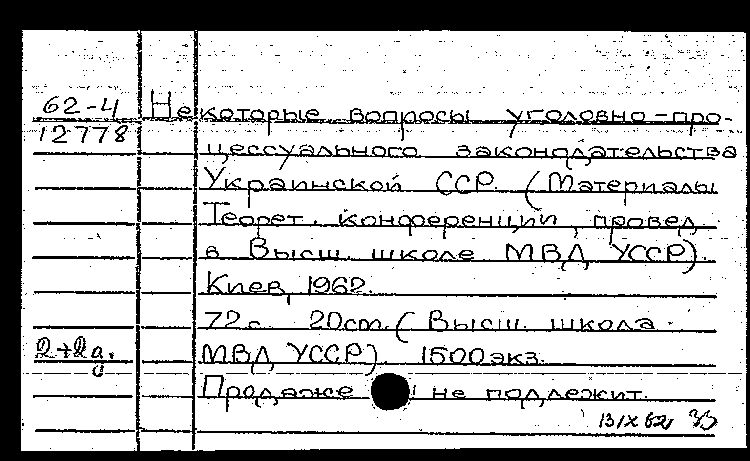 62-4 Некоторые вопросы уголовно-про-
12778 цессуального законодательства
Украинской ССР. (Материалы
Теорет. конференции, провед.
в Высш. школе МВД УССР).
Киев, 1962.
72с. 20cm. (Высш. школа
2+2д. МВД УССР). 1500экз.
Продаже не подлежит.
13/IX 62